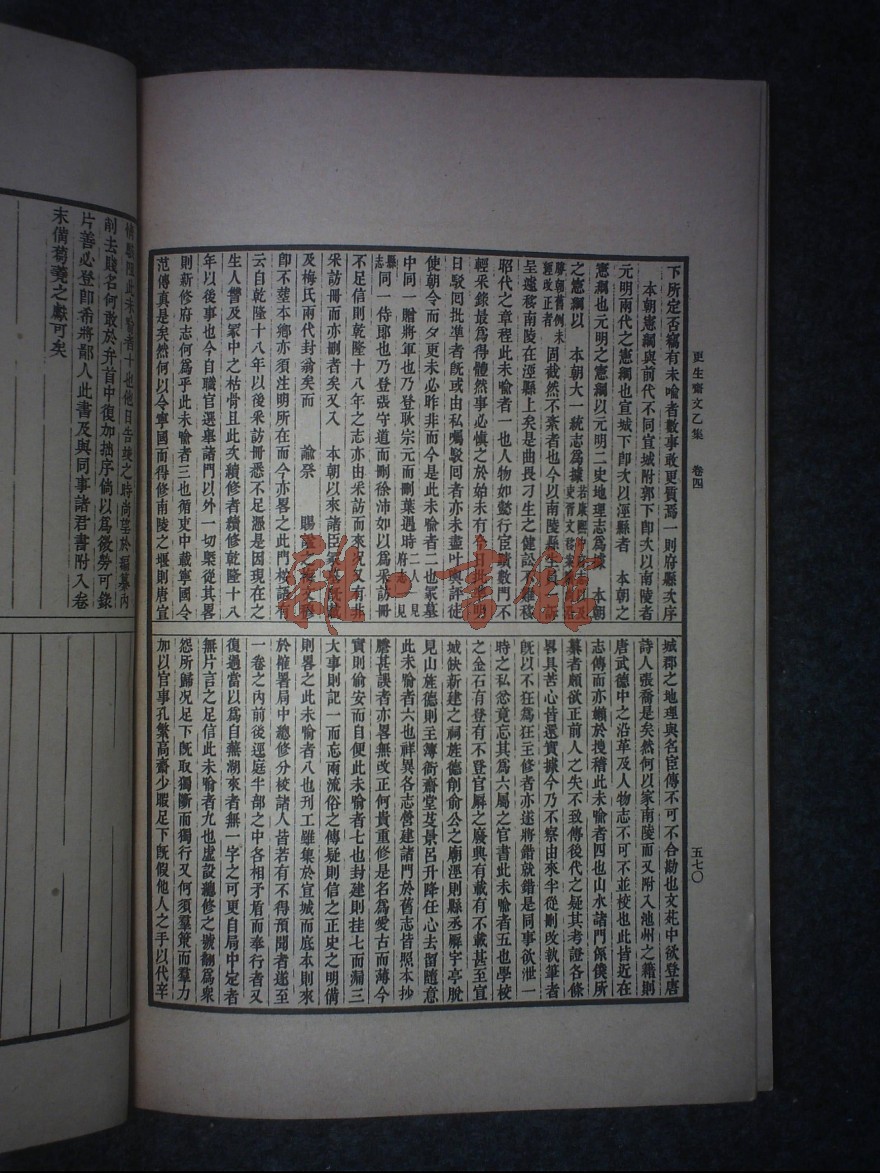 更生齋文乙集　卷四
五七〇
下所定否竊有未喻者數事敢更質焉一則府縣次序
本朝憲綱與前代不同宣城附郭下卽次以南陵者
元明兩代之憲綱也宣城下卽次以涇縣者　本朝之
憲綱也元明之憲綱以元明二史地理志爲據　本朝
之憲綱以　本朝大一統志爲據
勝朝舊例未經改正者　固截然不紊者也今以南陵縣生員
呈遽移南陵在涇縣上矣是由畏刁生之健訟不難移
昭代之章程此未喻者一也人物如懿行宦蹟數門不
輕釆錄最爲得體然事必慎之於始未有今日批準明
日駁囘批準者旣或由私囑駁囘者亦未盡叶輿評徒
使朝令而夕更未必昨非而今是此未喻者二也冢墓
中同一贈將軍也乃登耿宗元而刪葉遇時
縣志同一侍郎也乃登張守道而刪徐沛如以爲釆訪冊
不足信則乾隆十八年之志亦由釆訪而來况又有非
釆訪冊而亦刪者矣又入　本朝以來諸臣冢墓旣載
及梅氏兩代封翁矣而　諭祭　賜
卽不塟本鄉亦須注明所在而今亦畧之此門按語有
云自乾隆十八年以後釆訪冊悉不足憑是因現在之
生人讐及冢中之枯骨且此次續修者續修乾隆十八
年以後事也今自職官選舉諸門以外一切槩從其畧
則新修府志何爲乎此未喻者三也循吏中載寧國令
范傳真是矣然何以令寧國而得修南陵之堰則唐宣
城郡之地理與名臣傳不可不合勘也文苑中欲登唐
詩人張喬是矣然何以家南陵而又附入池州之籍則
唐武德中之沿革及人物志不可不並校也此皆近在
志傳而亦嬾於搜稽此未喻者四也山水諸門係僕所
纂者頗欲正前人之失不致傳後代之疑其考證各條
畧具苦心皆還實據今乃不察由來半從刪改執筆者
旣以不狂爲狂主修者亦遂將錯就錯是同事欲泄一
時之私忿竟忘其爲六屬之官書此未喻者五也學校
之金石有登有不登官廨之廢興有載有不載甚至宣
城缺新建之祠旌德削俞公之廟涇則縣丞廨宇亭脫
見山旌德則主簿衙齋堂芟景呂升降任心去留隨意
此未喻者六也祥異各志營建諸門於舊志皆照本抄
謄甚誤者亦畧無改正何貴重修是名爲愛古而薄今
實則偷安而自便此未喻者七也封建則挂七而漏三
大事則記一而忘兩流俗之傳疑則信之正史之明備
則畧之此未喻者八也刊工雖集於宣城而底本則來
於榷署局中總修分校諸人皆若有不得預聞者遂至
一卷之內前後逕庭半部之中各相矛盾而奉行者又
復過當以爲自蕪湖來者無一字之可更自局中定者
無片言之足信此未喻者九也虛設總修之號翻爲衆
怨所歸况足下旣取獨斷而獨行又何須羣策而羣力
加以官事孔繁高齋少暇足下旣假他人之手以代辛
此未喻者十也他日告竣之時尚望於編纂內
削去賤名何敢於弁首中復加拙序倘以爲微勞可錄
片善必登卽希將鄙人此書及與同事諸君書附入卷
末備蒭蕘之獻可矣